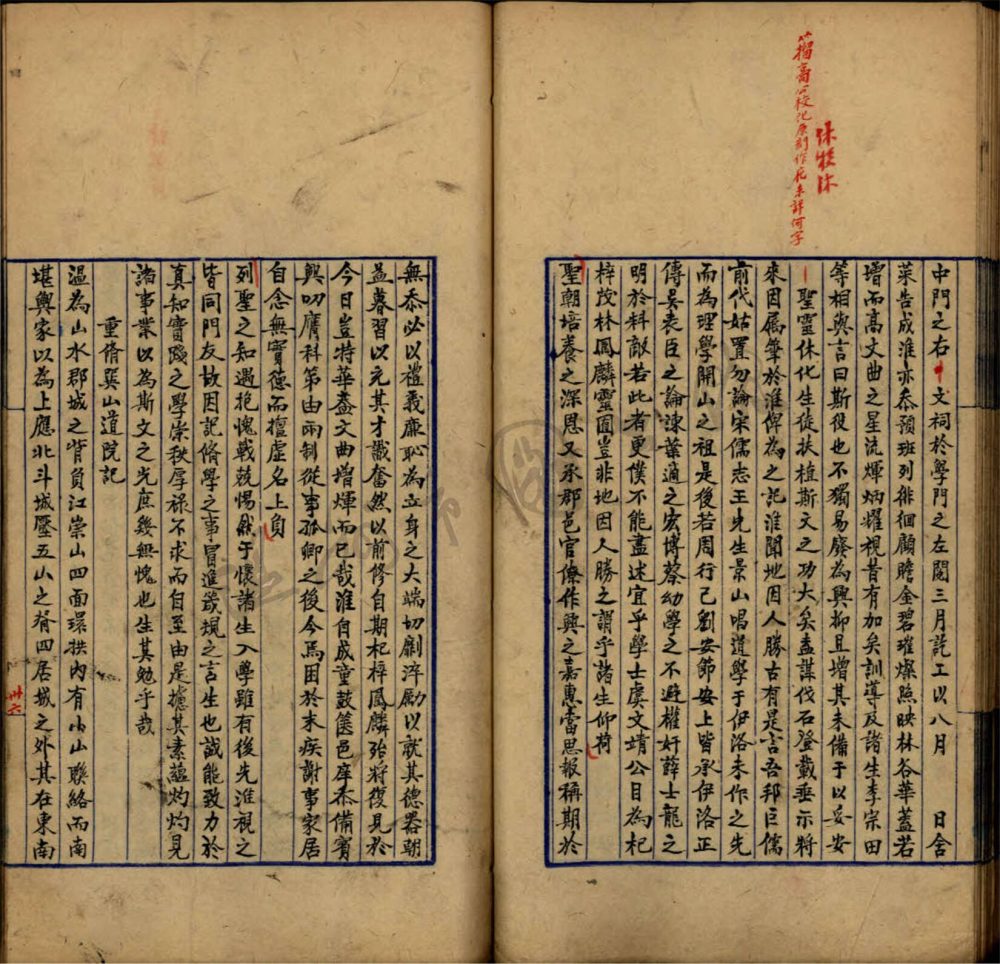 休牧沐
中門之右文祠於學門之左閱三月訖工以八月　日舍
菜告成淮亦忝預班列徘徊顧瞻金碧璀燦照映林谷華蓋若
增而高文曲之星流煇炳耀視昔有加矣訓導及諸生李宗田
等相與言曰斯役也不獨易廢為興抑且增其未備于以妥安
聖靈休化生徒扶植斯文之功大矣盍謀伐石登載垂示將
來因屬筆於淮俾為之記淮聞地因人勝古有是言吾邦巨儒
前代姑置勿論宋儒志王先生景山唱道學于伊洛未作之先
而為理學開山之祖是後若周行己劉安節安上皆承伊洛正
傳吳表臣之論諫葉適之宏博蔡幼學之不避權奸薛士龍之
明於料敵若此者更僕不能盡述宜乎學士虞文靖公目為杞
梓茂林鳳麟靈囿豈非地因人勝之謂乎諸生仰荷
聖朝培養之深恩又承郡邑官僚作興之嘉惠當思報稱期於
無忝必以禮義廉恥為立身之大端切劘淬勵以就其德器朝
益暮習以充其才識奮然以前修自期杞梓鳳麟殆將復見於
今日豈特華蓋文曲增煇而已哉淮自成童鼓篋邑庠忝備賓
興叨膺科第由兩制從事孤卿之後今焉困於末疾謝事家居
自念無實德而擅虛名上負
列聖之知遇抱愧戰兢惕然于懷諸生入學雖有後先淮視之
皆同門友故因記脩學之事冒進箴規之言生也誠能致力於
真知實踐之學崇秩厚祿不求而自至由是攄其素蘊灼灼見
諸事業以為斯文之光庶幾無愧也生其勉乎哉
重脩巽山道院記
溫為山水郡城之背負江崇山四面環拱內有小山聯絡而南
堪輿家以為上應北斗城壓五山之脊四居城之外其在東南
卅六